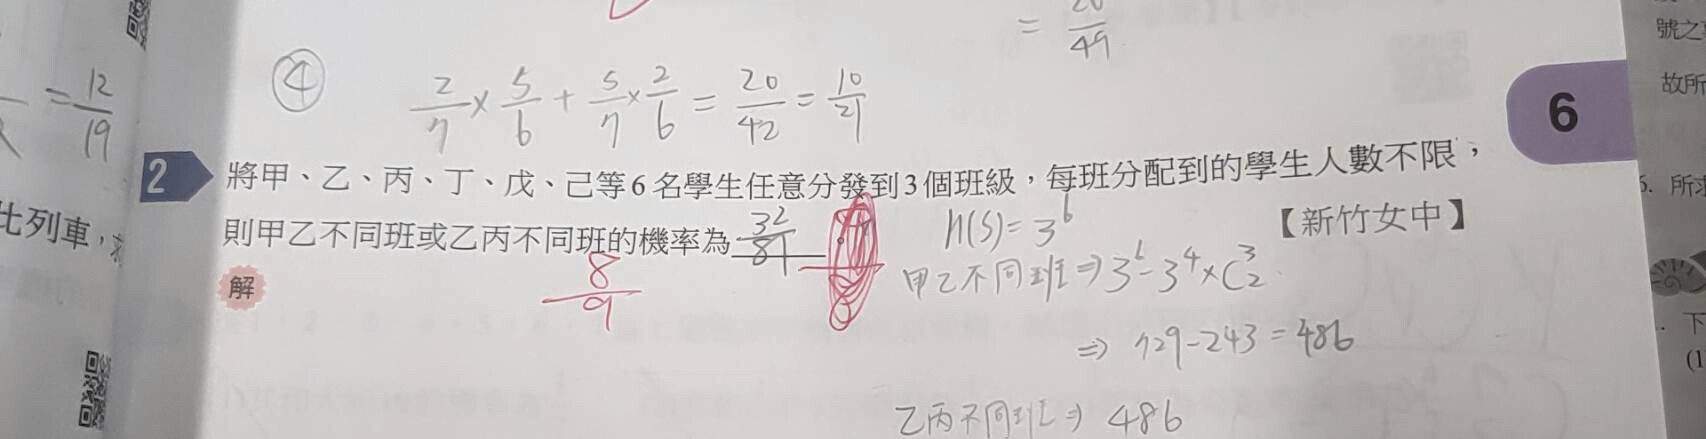 = 20/49
④ 2/7 × 5/6 + 5/7 × 2/6 = 20/42 = 10/21
= 12/19
6
2 將甲、乙、丙、丁、戊、己等6名學生任意分發到3個班級，每班分配到的學生人數不限，
則甲乙不同班或乙丙不同班的機率為 32/81
【新竹女中】
8/9
解
n(S)=3^6
甲乙不同班⇒3^6-3^4×C^3_2
⇒ 729-243=486
乙丙不同班⇒ 486
比列車，
號之
故所
所
下
(1